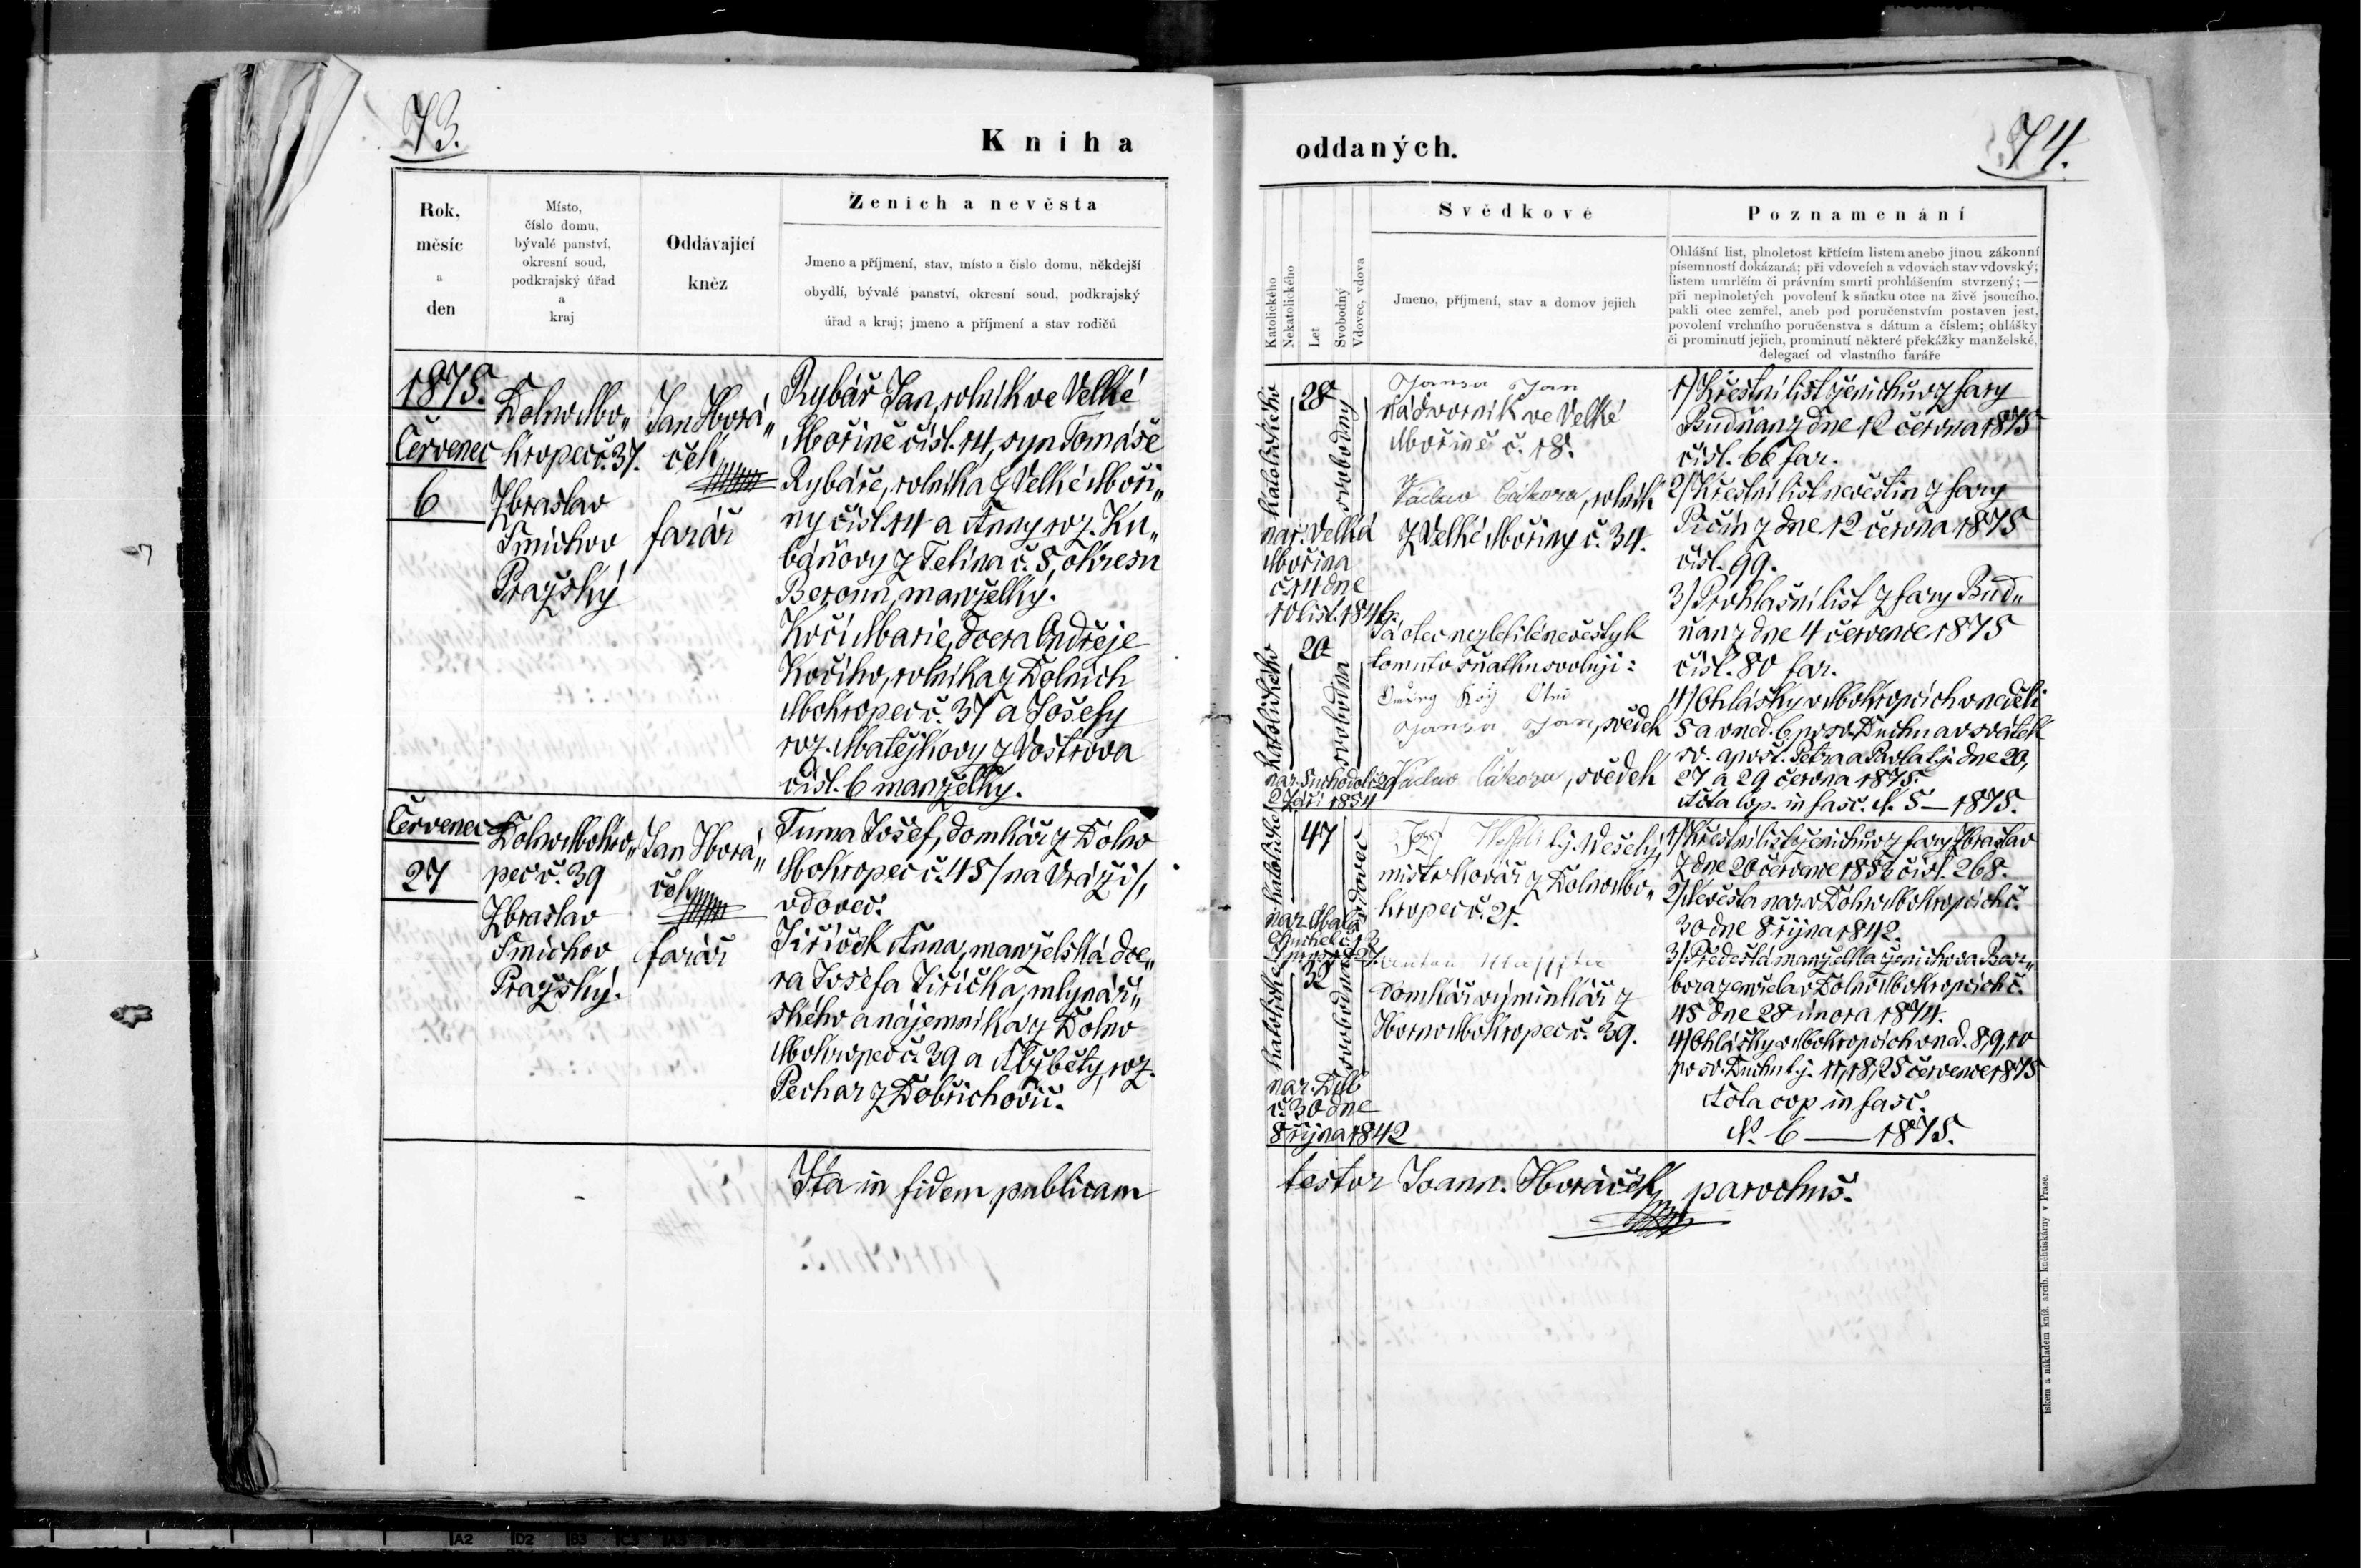 73.
Kniha
Rok,
měsíc
a
den
Místo,
číslo domu,
bývalé panství,
okresní soud,
podkrajský úřad
a
kraj
Oddávající
kněz
Ženich a nevěsta
Jmeno a příjmení, stav, místo a číslo domu, někdejší
obydlí, bývalé panství, okresní soud, podkrajský
úřad a kraj; jmeno a příjmení a stav rodičů
1875.
Červenec
6
Dolno Mo„
kropec č. 37.
Zbraslav
Smíchov
Pražský
Jan Horá„
ček
farář
Rybář Jan, rolník ve Velké
Mořině čísl. 14, syn Tomáše
Rybáře, rolníka z Velké Moři„
ny čísl. 14 a Anny roz. Ku„
báňovy z Tetína č. 5, okresu
Beroun, manželky.
Kočí Marie, dcera Ondřeje
Kočího, rolníka z Dolních
Mokropec č. 37 a Josefy
roz. Matějkovy z Vostrova
čísl. 6 manželky.
Červenec
27
Dolno Mokro„
pec č. 39
Zbraslav
Smíchov
Pražský.
Jan Horá„
ček
farář
Tuma Josef, domkář z Dolno
Mokropec č. 45 /na Vráži/,
vdovec.
Jiříček Anna, manželská dce„
ra Josefa Jiříčka, mlynář„
ského a nájemníka z Dolno
Mokropec č. 39 a Alžběty, roz.
Pechar z Dobřichovic.
Ita in fidem publicam
oddaných.
74.
Katolického
Nekatolického
Let
Svobodný
Vdovec, vdova
Svědkové
Jmeno, příjmení, stav a domov jejich
Poznamenání
Ohlášní list, plnoletost křtícím listem anebo jinou zákonní
písemností dokázaná; při vdovcích a vdovách stav vdovský;
listem umrlčím či právním smrti prohlášením stvrzený; —
při neplnoletých povolení k sňatku otce na živě jsoucího,
pakli otec zemřel, aneb pod poručenstvím postaven jest,
povolení vrchního poručenstva s dátum a číslem; ohlášky
či prominutí jejich, prominutí některé překážky manželské,
delegací od vlastního faráře
katolického
28
svobodný
nar. Velká
Mořina
č. 14 dne
10 list. 1846.
Jansa Jan
nádvorník ve Velké
Mořině č. 18.
Václav Čákora, rolník
z Velké Mořiny č. 34.
1) Křestní list ženichův z fary
Budňan z dne 12 června 1875
čísl. 66 far.
2) Křestní list nevěstin z fary
Pičín z dne 12 června 1875
čísl. 99.
3) Prohlášní list z fary Bud„
ňan z dne 4 července 1875
čísl. 80 far.
4) Ohlášky v Mokropcích v neděli
5 a v ned. 6 po sv. Duchu a v svátek
sv. apošt. Petra a Pavla tj. dne 20,
27 a 29 června 1875.
Acta cop. in fasc. N. 5 — 1875.
katolického
20
svobodná
nar. Suchodol č. 29
Září 1854
Já otec nezletilé nevěsty k
tomuto sňatku svoluji:
Jansa Jan, svědek
Václav Čákora, svědek
katolické
47
vdovec
nar. Malá
Chuchel č. 13
t.j. Veselý,
mistr kovář z Dolno Mo„
kropec č. 21.
1) Křestní list ženichův z fary Zbraslav
z dne 20 července 1853 čísl. 268.
2) Nevěsta nar. v Dolno Mokropcích č.
30 dne 8 října 1842.
3) Předešlá manželka ženichova Bar„
bora zemřela v Dolno Mokropcích č.
45 dne 28 února 1874.
4) Ohlášky v Mokropcích v ned. 8, 9, 10
po sv. Duchu t.j. 11, 18, 25 července 1875
Acta cop in fasc.
N. 6 — 1875.
katolické
32
svobodná
nar. DM
č. 30 dne
8 října 1842
domkář výminkář z
Horno Mokropec č. 39.
testor Joann. Horáček parochus.
iskem a nákladem kníž. arcib. knihtiskárny v Praze.
A2
D2
B3